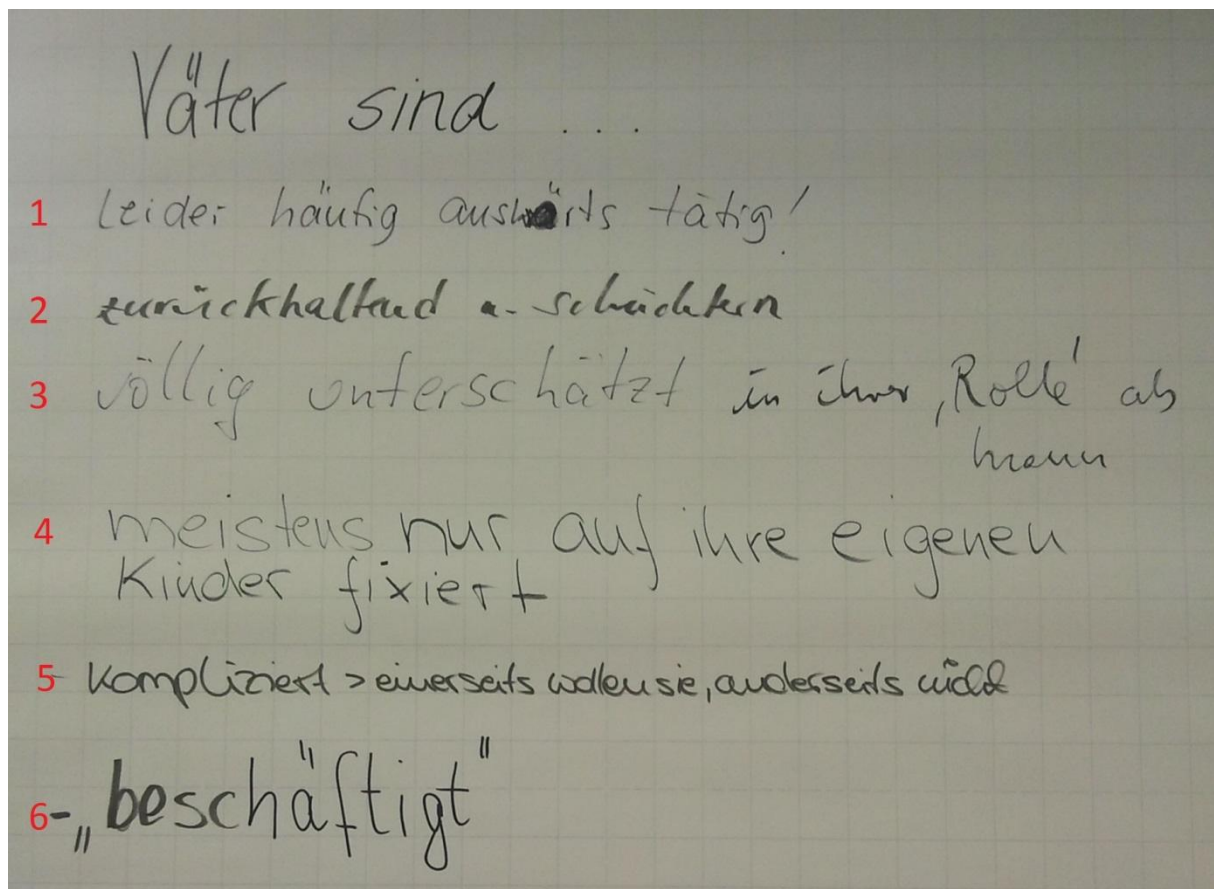 Väter sind ...
1 leider häufig auswärts tätig!
2 zurückhaltend u. schüchtern
3 völlig unterschätzt in ihrer ‚Rolle' als
Mann
4 meistens nur auf ihre eigenen
Kinder fixiert
5 kompliziert > einerseits wollen sie, anderseits nicht
6- „beschäftigt"